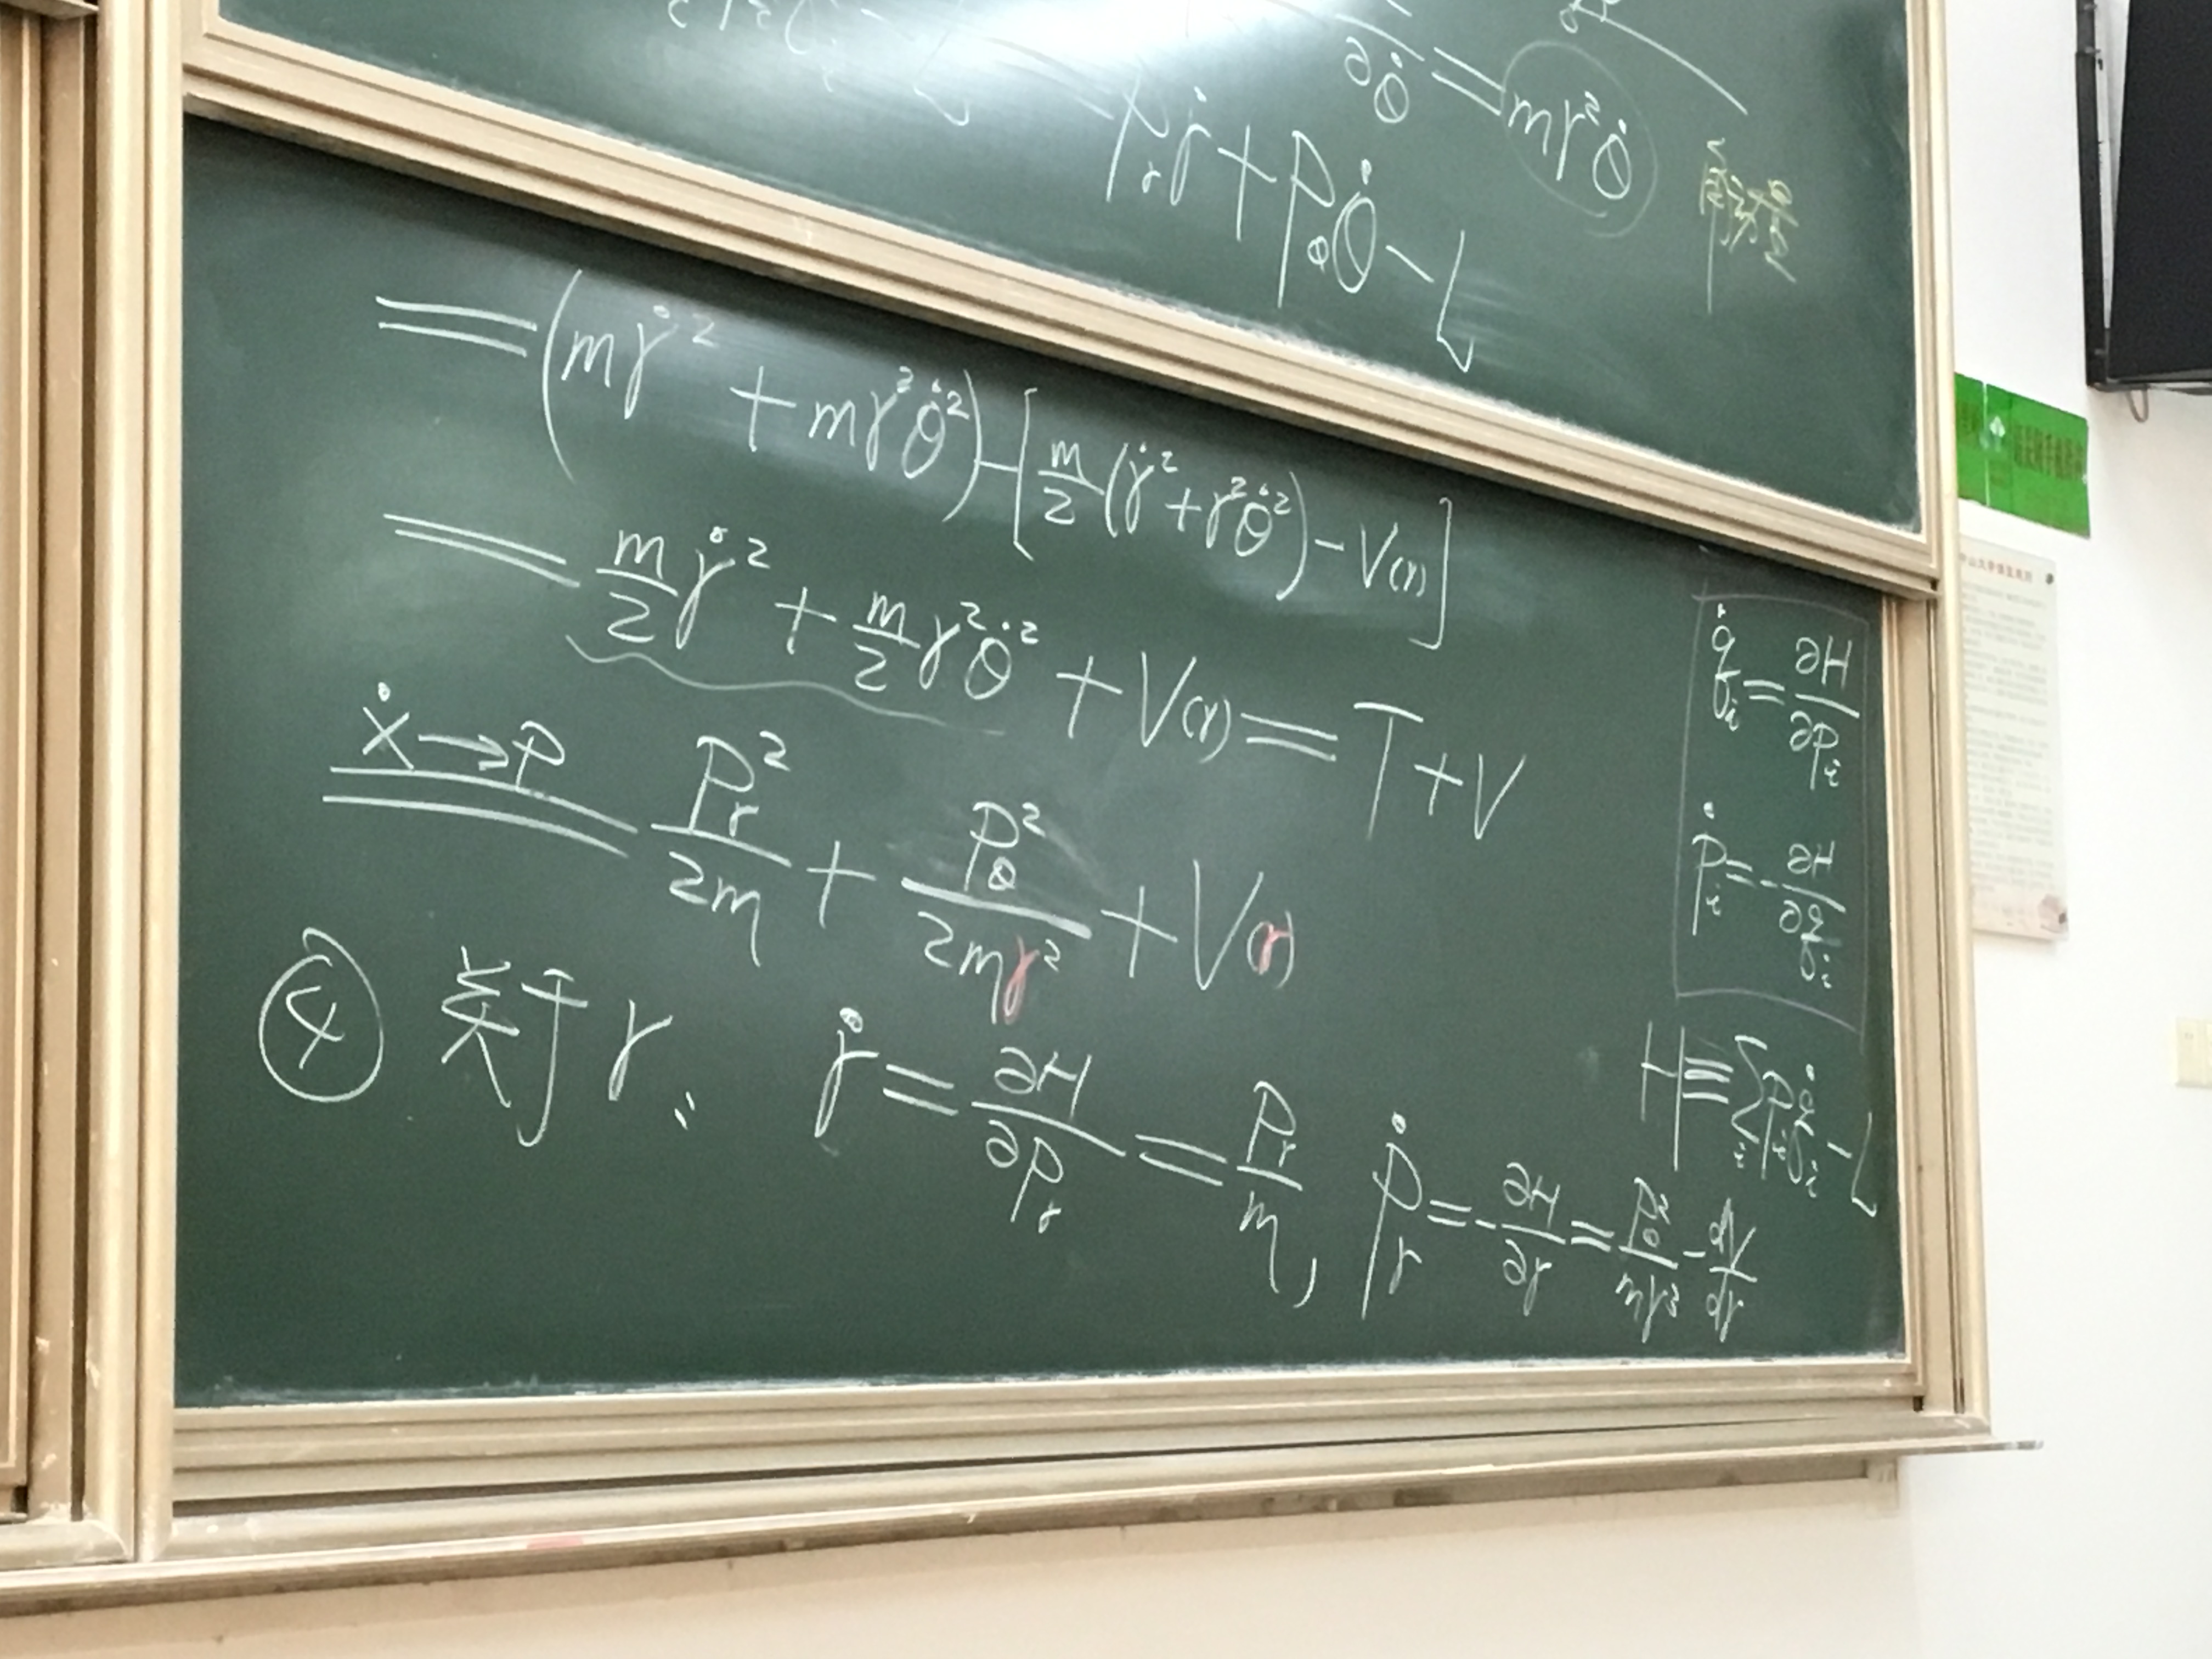 ∂θ̇ = mr²θ̇
角动量
P_r ṙ + P_θ θ̇ - L
= (mṙ² + mr²θ̇²) - [m/2 (ṙ² + r²θ̇²) - V(r)]
= m/2 ṙ² + m/2 r²θ̇² + V(r) = T + V
ẋ → P
= P_r²/2m + P_θ²/2mr² + V(r)
④ 关于 r: ṙ = ∂H/∂P_r = P_r/m, Ṗ_r = -∂H/∂r = P_θ²/mr³ - dV/dr
q̇_i = ∂H/∂p_i
ṗ_i = -∂H/∂q_i
H ≡ Σ_i p_i q̇_i - L